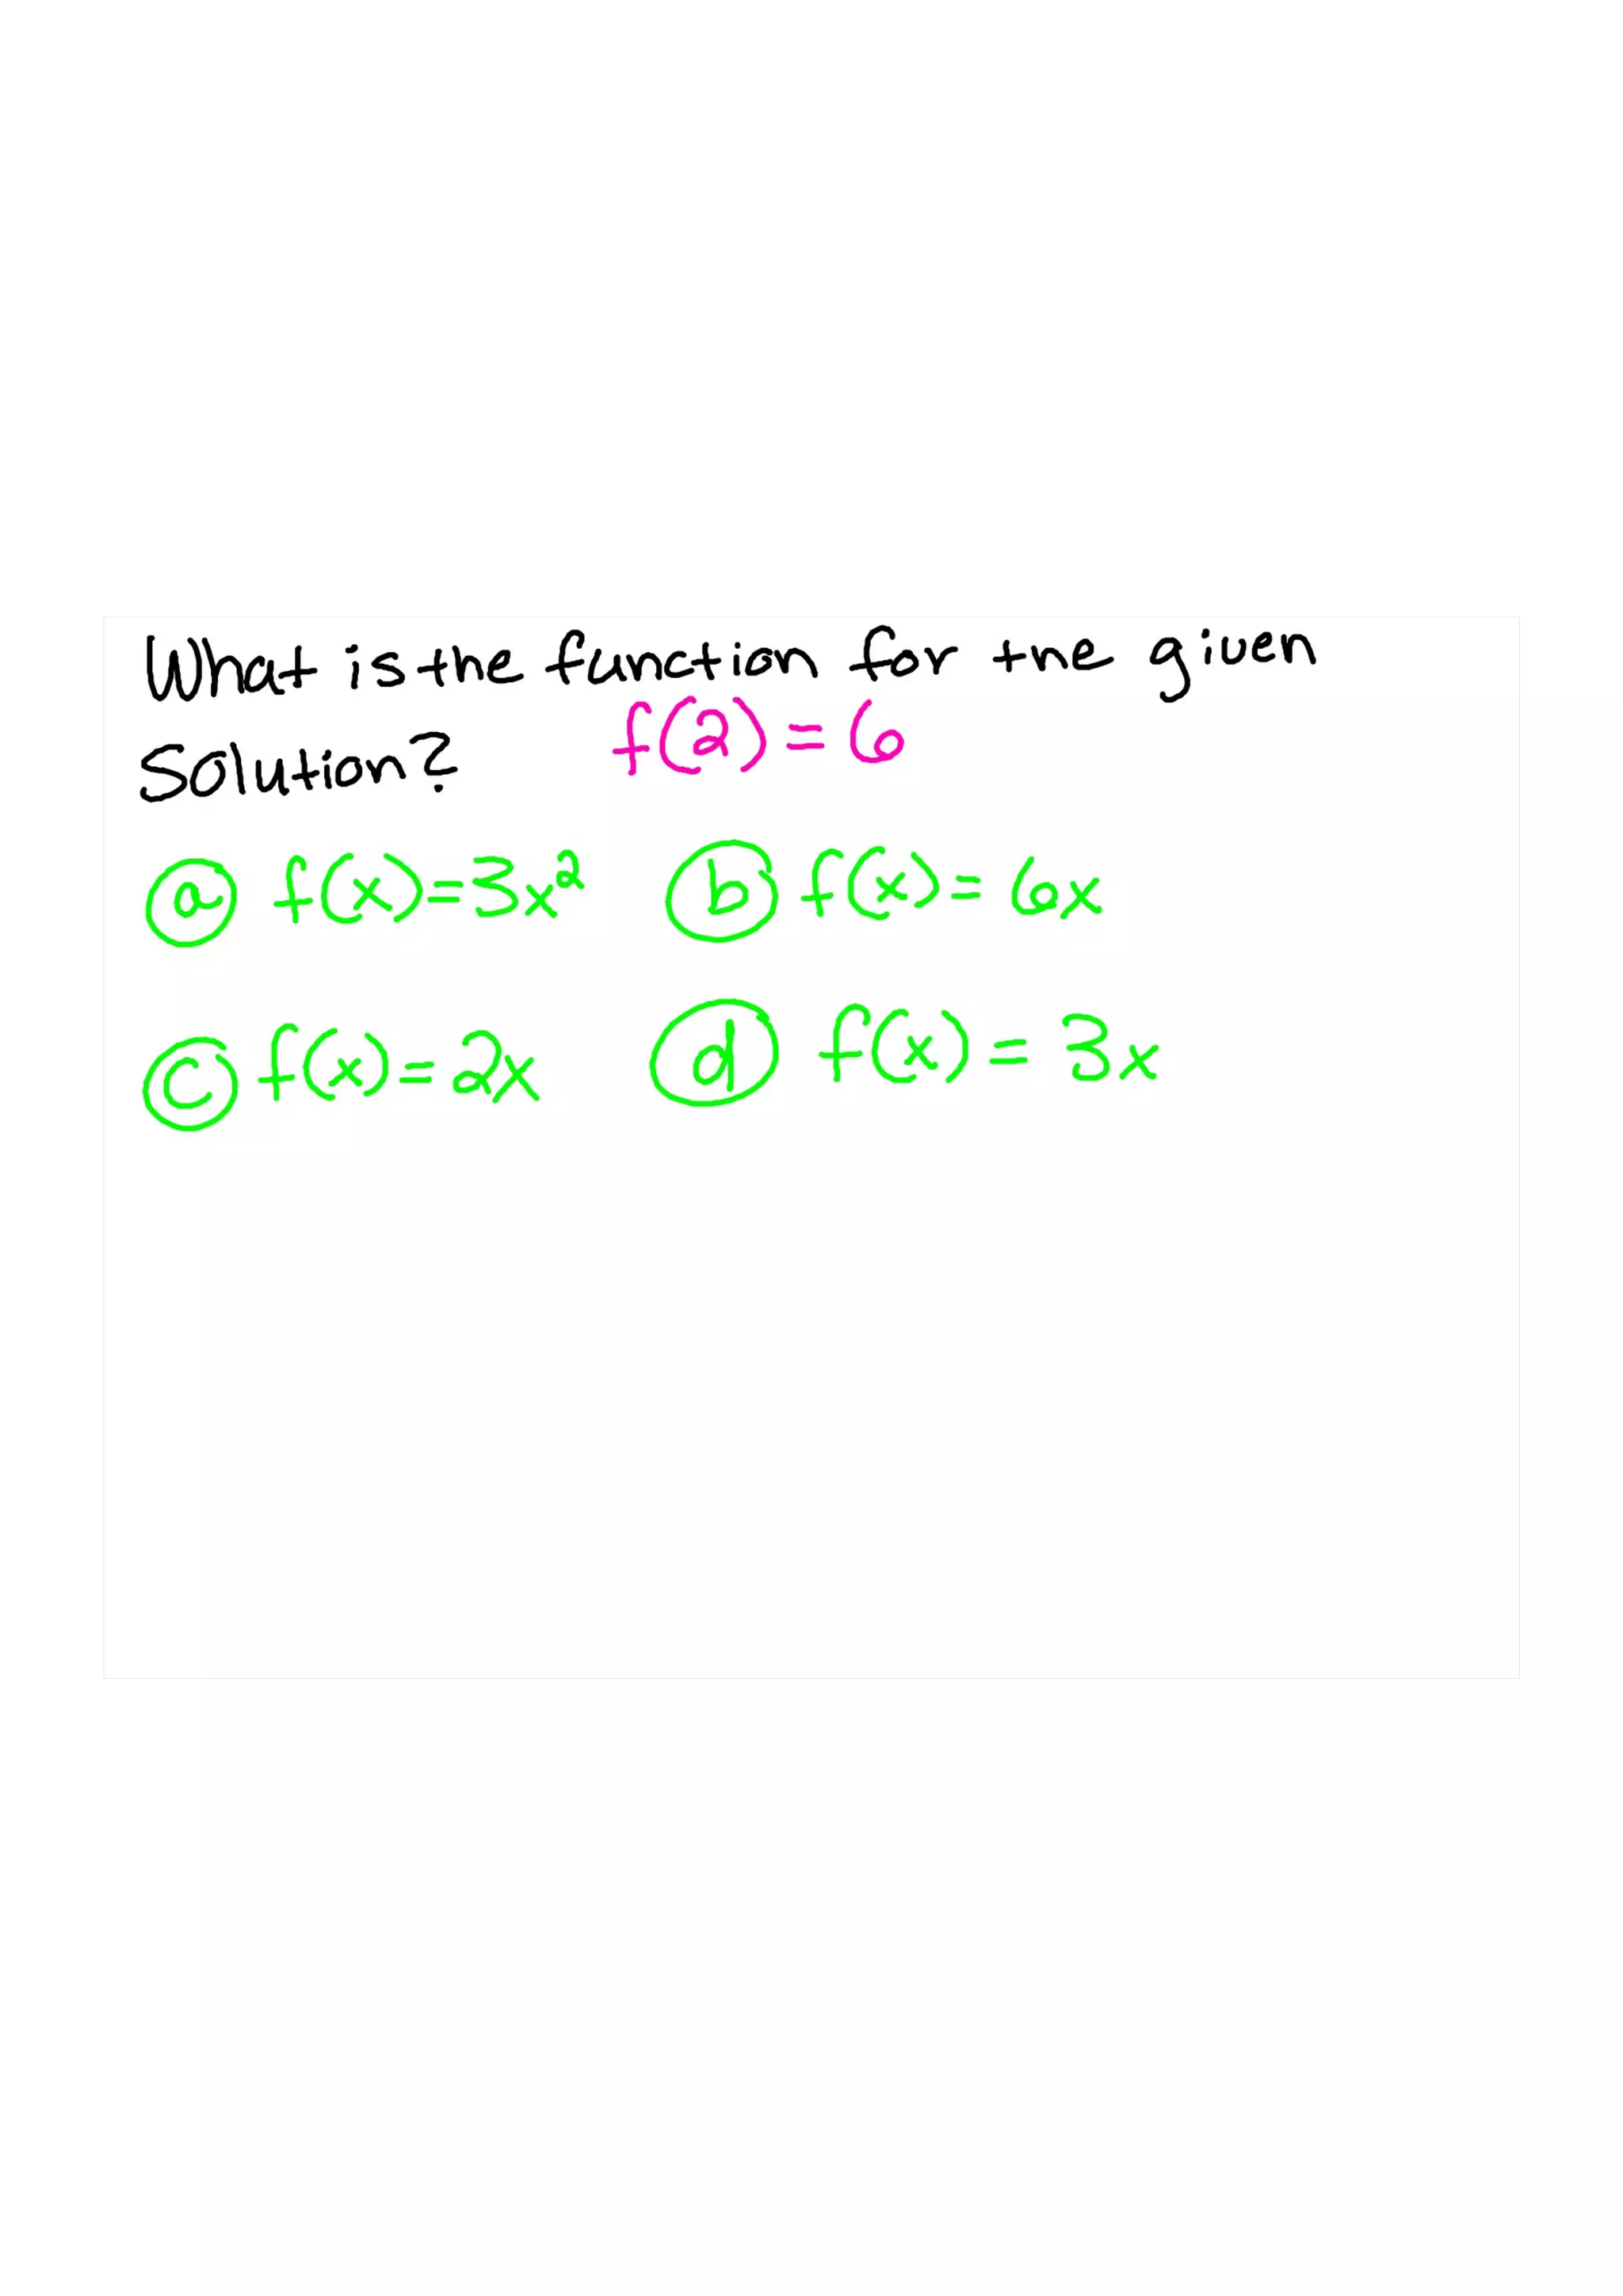 What is the function for the given
solution? f(2) = 6
ⓐ f(x) = 3x² ⓑ f(x) = 6x
ⓒ f(x) = 2x ⓓ f(x) = 3x